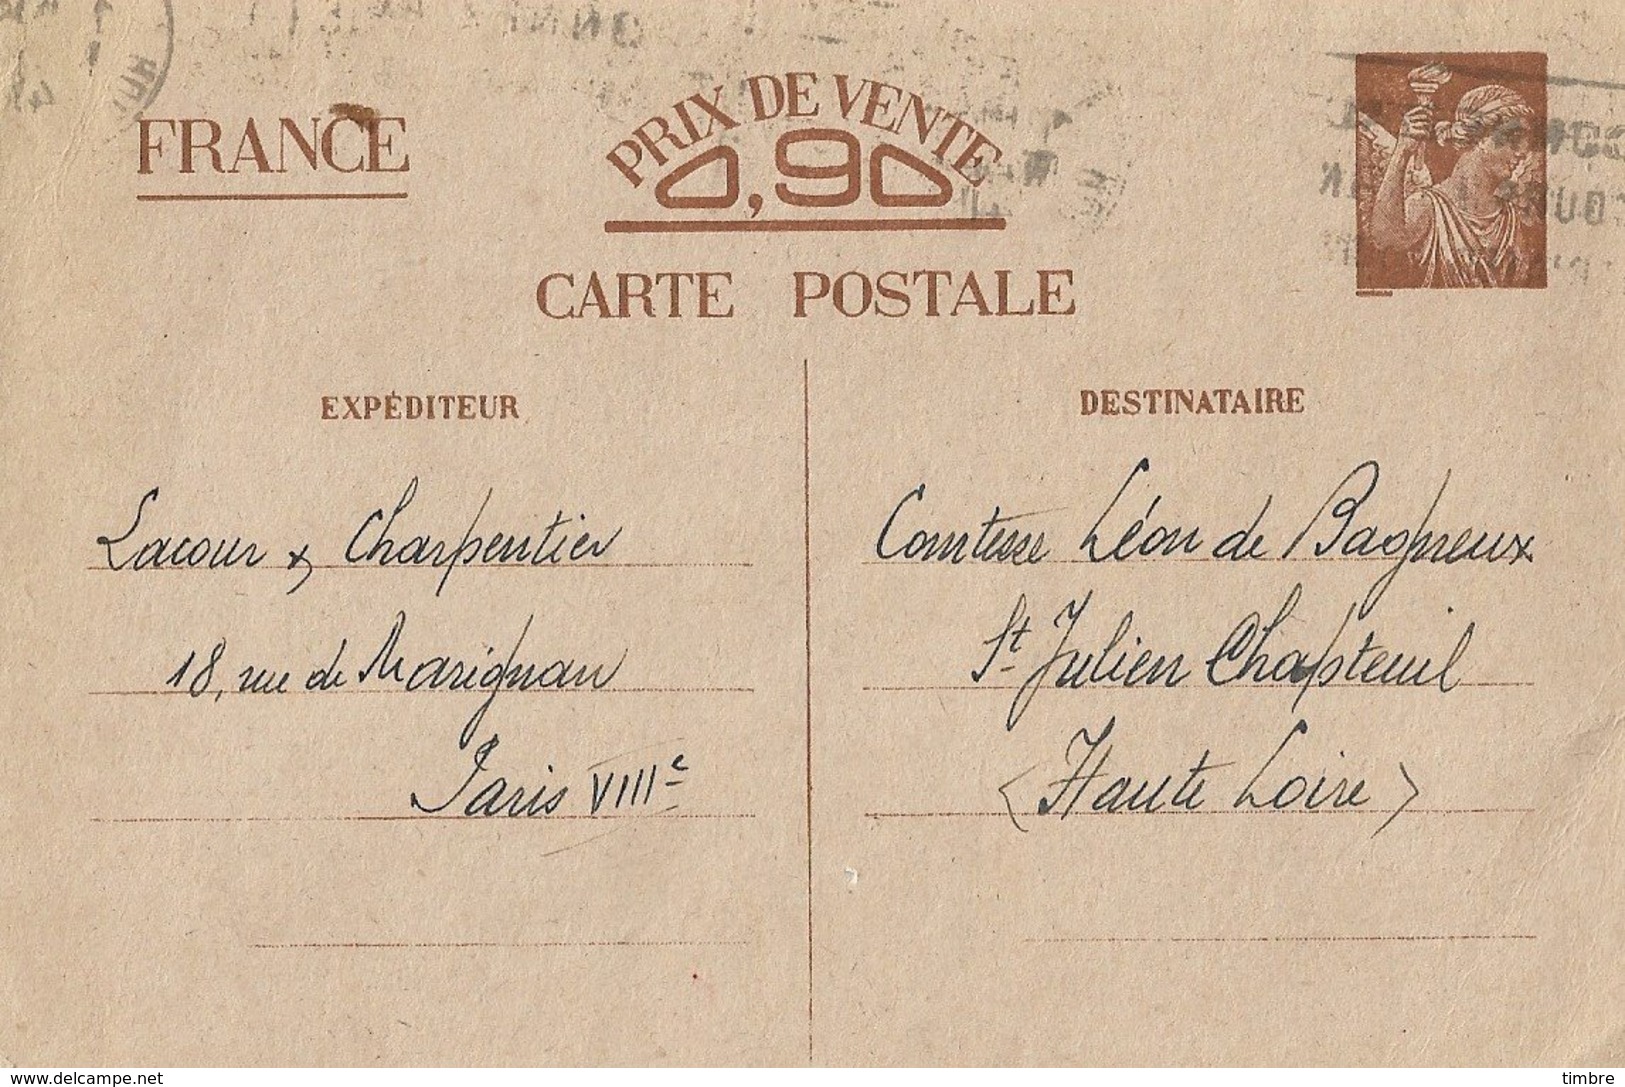 FRANCE
PRIX DE VENTE
0,90
CARTE POSTALE
EXPÉDITEUR
Lacour & Charpentier
18, rue de Marignan
Paris VIIIe
DESTINATAIRE
Comtesse Léon de Bagneux
St Julien Chapteuil
(Haute Loire)
www.delcampe.net
timbre